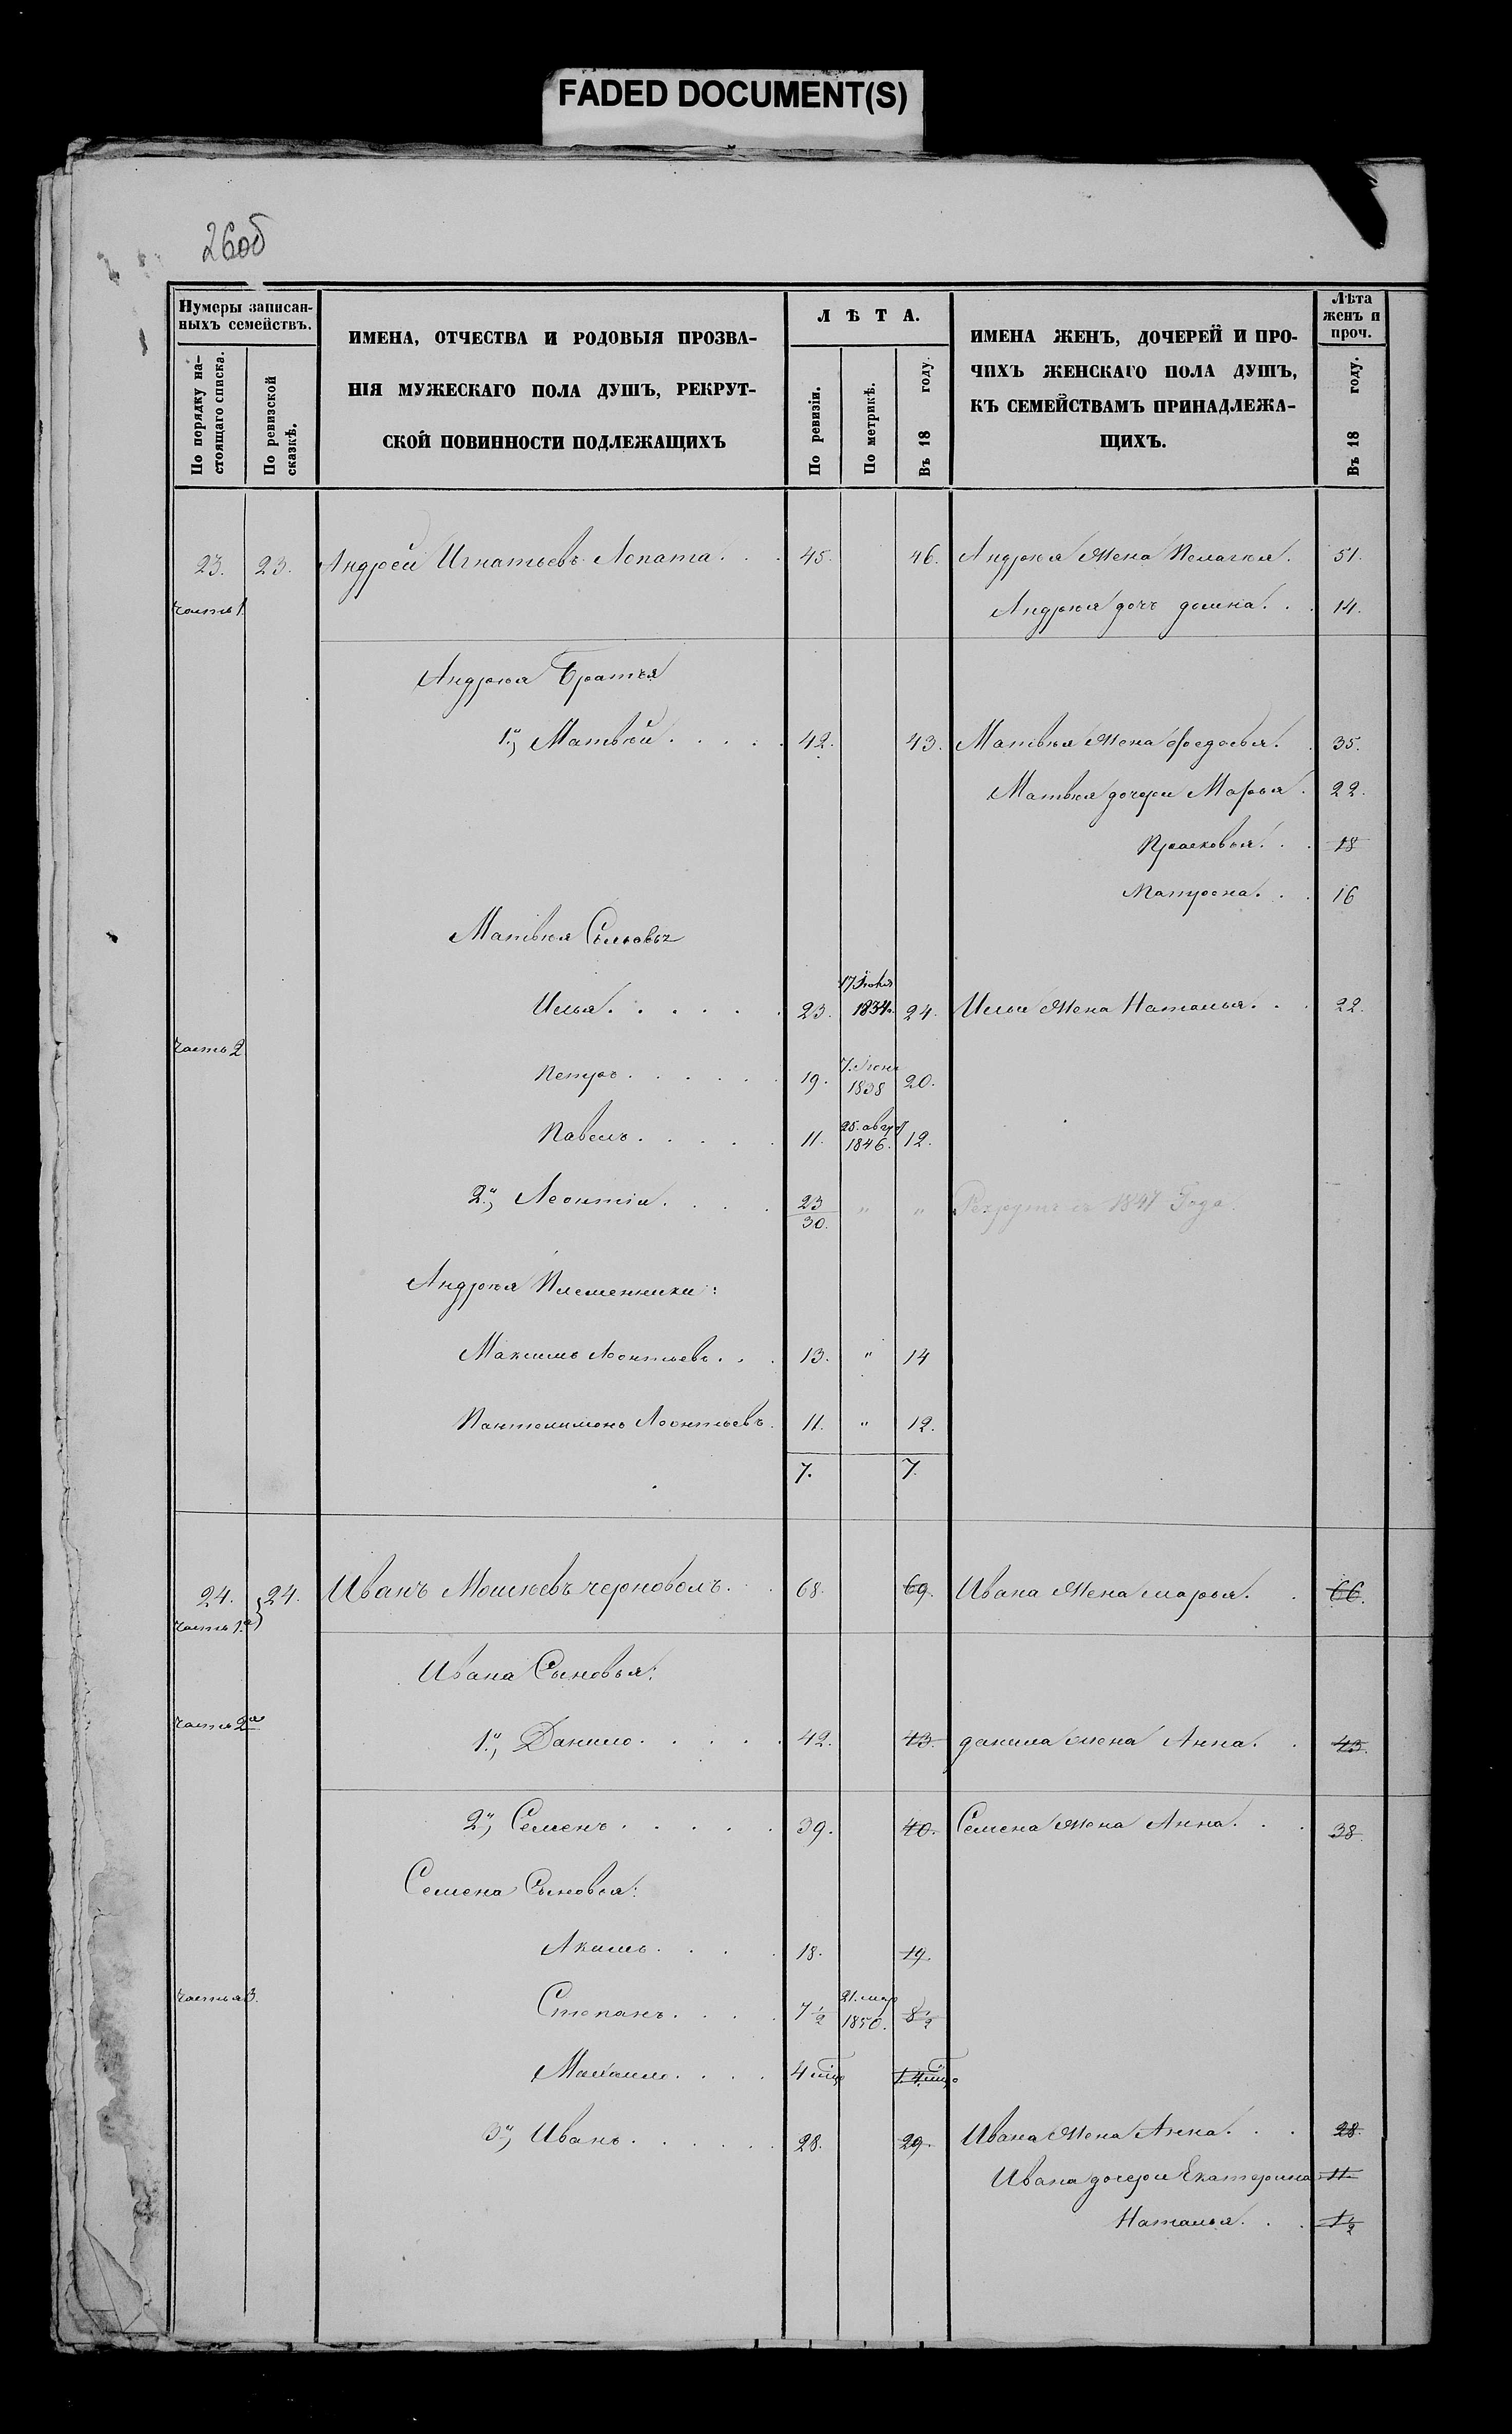 FADED DOCUMENT(S)
26об
Нумеры записан-
ныхъ семействъ.
По порядку на-
стоящаго списка.
По ревизской
сказкѣ.
ИМЕНА, ОТЧЕСТВА И РОДОВЫЯ ПРОЗВА-
НІЯ МУЖЕСКАГО ПОЛА ДУШЪ, РЕКРУТ-
СКОЙ ПОВИННОСТИ ПОДЛЕЖАЩИХЪ
ЛѢТА.
По ревизіи.
По метрикѣ.
Въ 18 году.
ИМЕНА ЖЕНЪ, ДОЧЕРЕЙ И ПРО-
ЧИХЪ ЖЕНСКАГО ПОЛА ДУШЪ,
КЪ СЕМЕЙСТВАМЪ ПРИНАДЛЕЖА-
ЩИХЪ.
Лѣта
женъ и
проч.
Въ 18 году.
23. 23. Андрей Игнатьевъ Лопата. 45. 46. Андрѣя Жена Пелагѣя. 51.
часть 1. Андрѣя дочъ домна. 14.
Андрѣя Братья
1й, Матвѣй. 42. 43. Матвѣя Жена Федосья. 35.
Матвѣя дочери Марья. 22.
Прасковья. 18
Матрена. 16
Матвѣя Сыновья
Илья. 23. 17 1834. 24. Ильи Жена Наталья. 22.
часть 2
Петръ. 19. 7. 1838 20.
Павелъ. 11. 25. авгус 1846. 12.
2й, Леонтій. 23 30. " " Рекрутъ съ 1847 Года.
Андрѣя Племенники:
Максимъ Леонтьевъ. 13. " 14
Пантелимонъ Леонтьевъ. 11. " 12.
7. 7.
24. 24. Иванъ Мошѣевъ черноволъ. 68. 69. Ивана Жена марья. 66.
часть 1а
Ивана Сыновья:
часть 2а
1й, Данило. 42. 43. данила жена Анна. 43.
2й, Семенъ. 39. 40. Семена Жена Анна. 38.
Семена Сыновья:
Акимъ. 18. 19.
часть 3.
Степанъ. 7½ 21. мар 1850. 8½
Михаило. 4 1. 4
3й, Иванъ. 28. 29. Ивана Жена Анна. 28.
Ивана дочери Екатерина 11.
Наталья. 1½